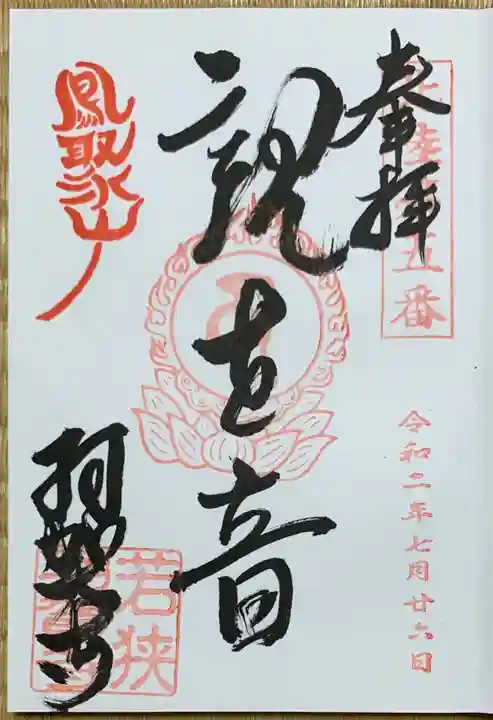 奉拝
北陸第五番
令和二年七月廿六日
観世音
鳳聚山
羽賀寺
若狭
羽賀寺